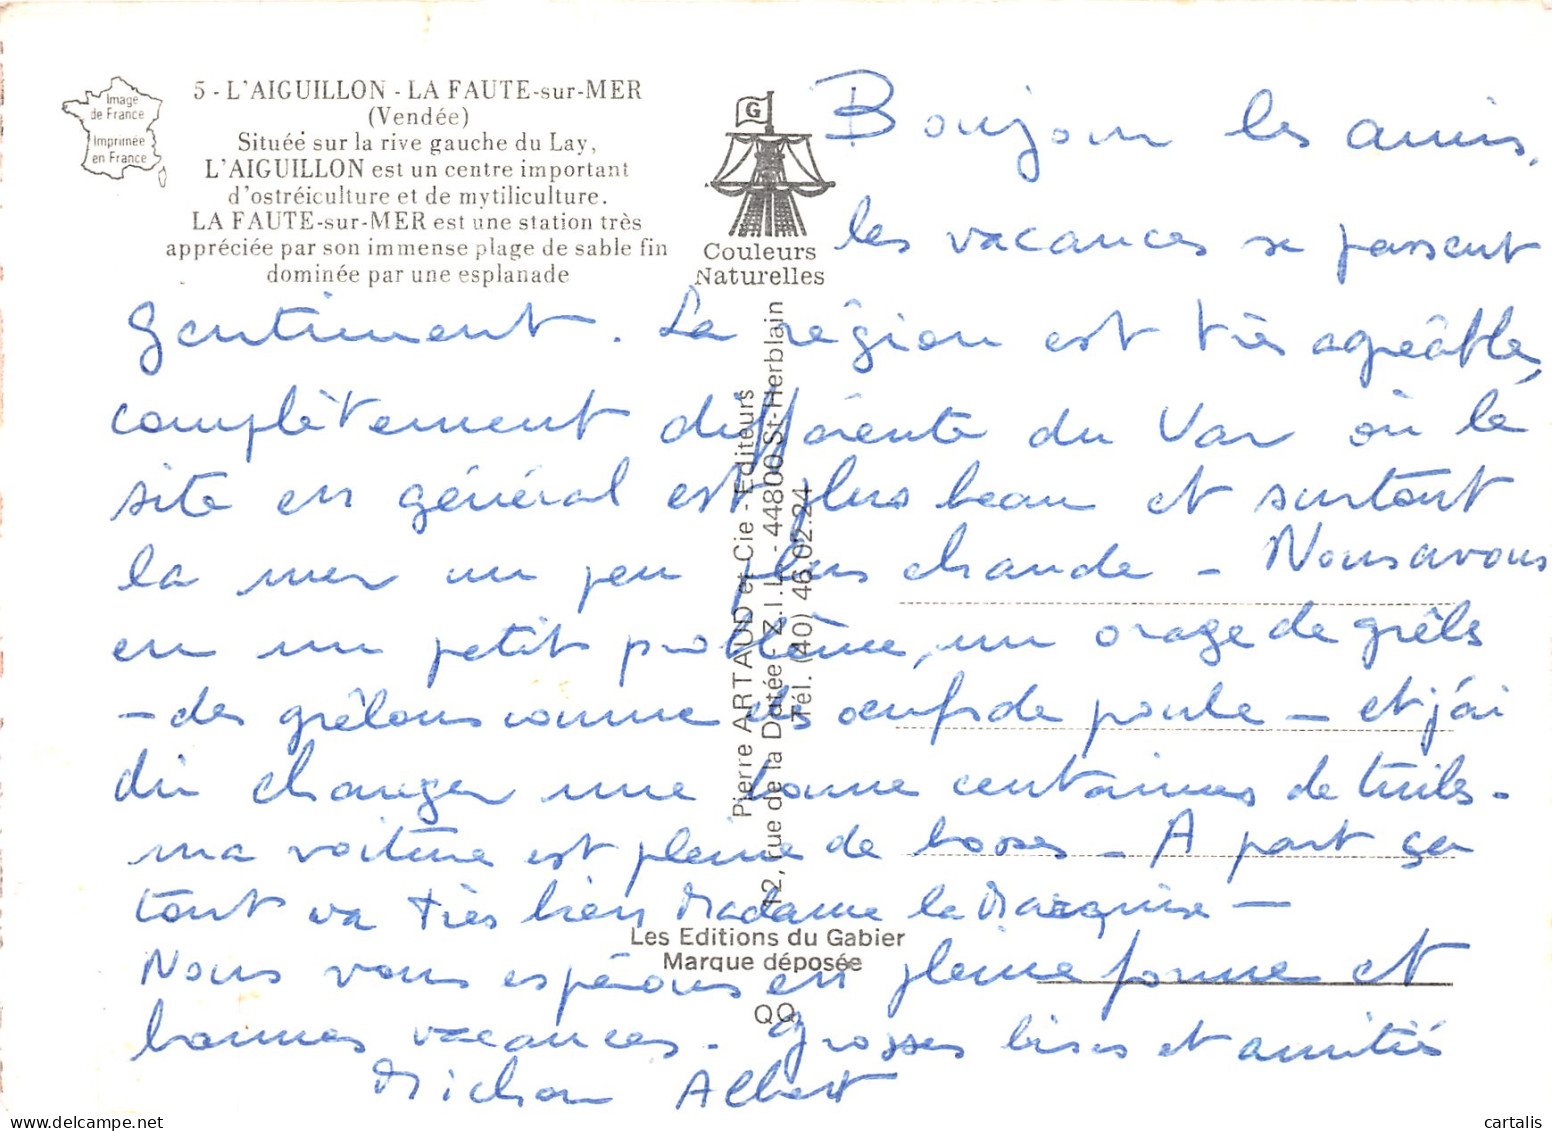 Image
de France
Imprimée
en France
5 - L'AIGUILLON - LA FAUTE-sur-MER
(Vendée)
Située sur la rive gauche du Lay,
L'AIGUILLON est un centre important
d'ostréiculture et de mytiliculture.
LA FAUTE-sur-MER est une station très
appréciée par son immense plage de sable fin
dominée par une esplanade
G
Couleurs
Naturelles
Pierre ARTAUD et Cie - Editeurs
12, rue de la Dutée - Z.I.L. - 44800 St-Herblain
Tél. (40) 46.02.24
Les Editions du Gabier
Marque déposée
QQ
Bonjour les amis,
les vacances se passent
gentiment. La région est très agréable,
complètement différente du Var où le
site en général est plus beau et surtout
la mer un peu plus chaude - Nous avons
eu un petit problème, un orage de grêle
- des grêlons comme des oeufs de poule - et j'ai
dû changer une bonne centaine de tuiles -
ma voiture est pleine de bosses - A part ça
tout va très bien Madame la Marquise -
Nous vous espérons en pleine forme et
bonnes vacances. Grosses bises et amitiés
Albert
cartalis